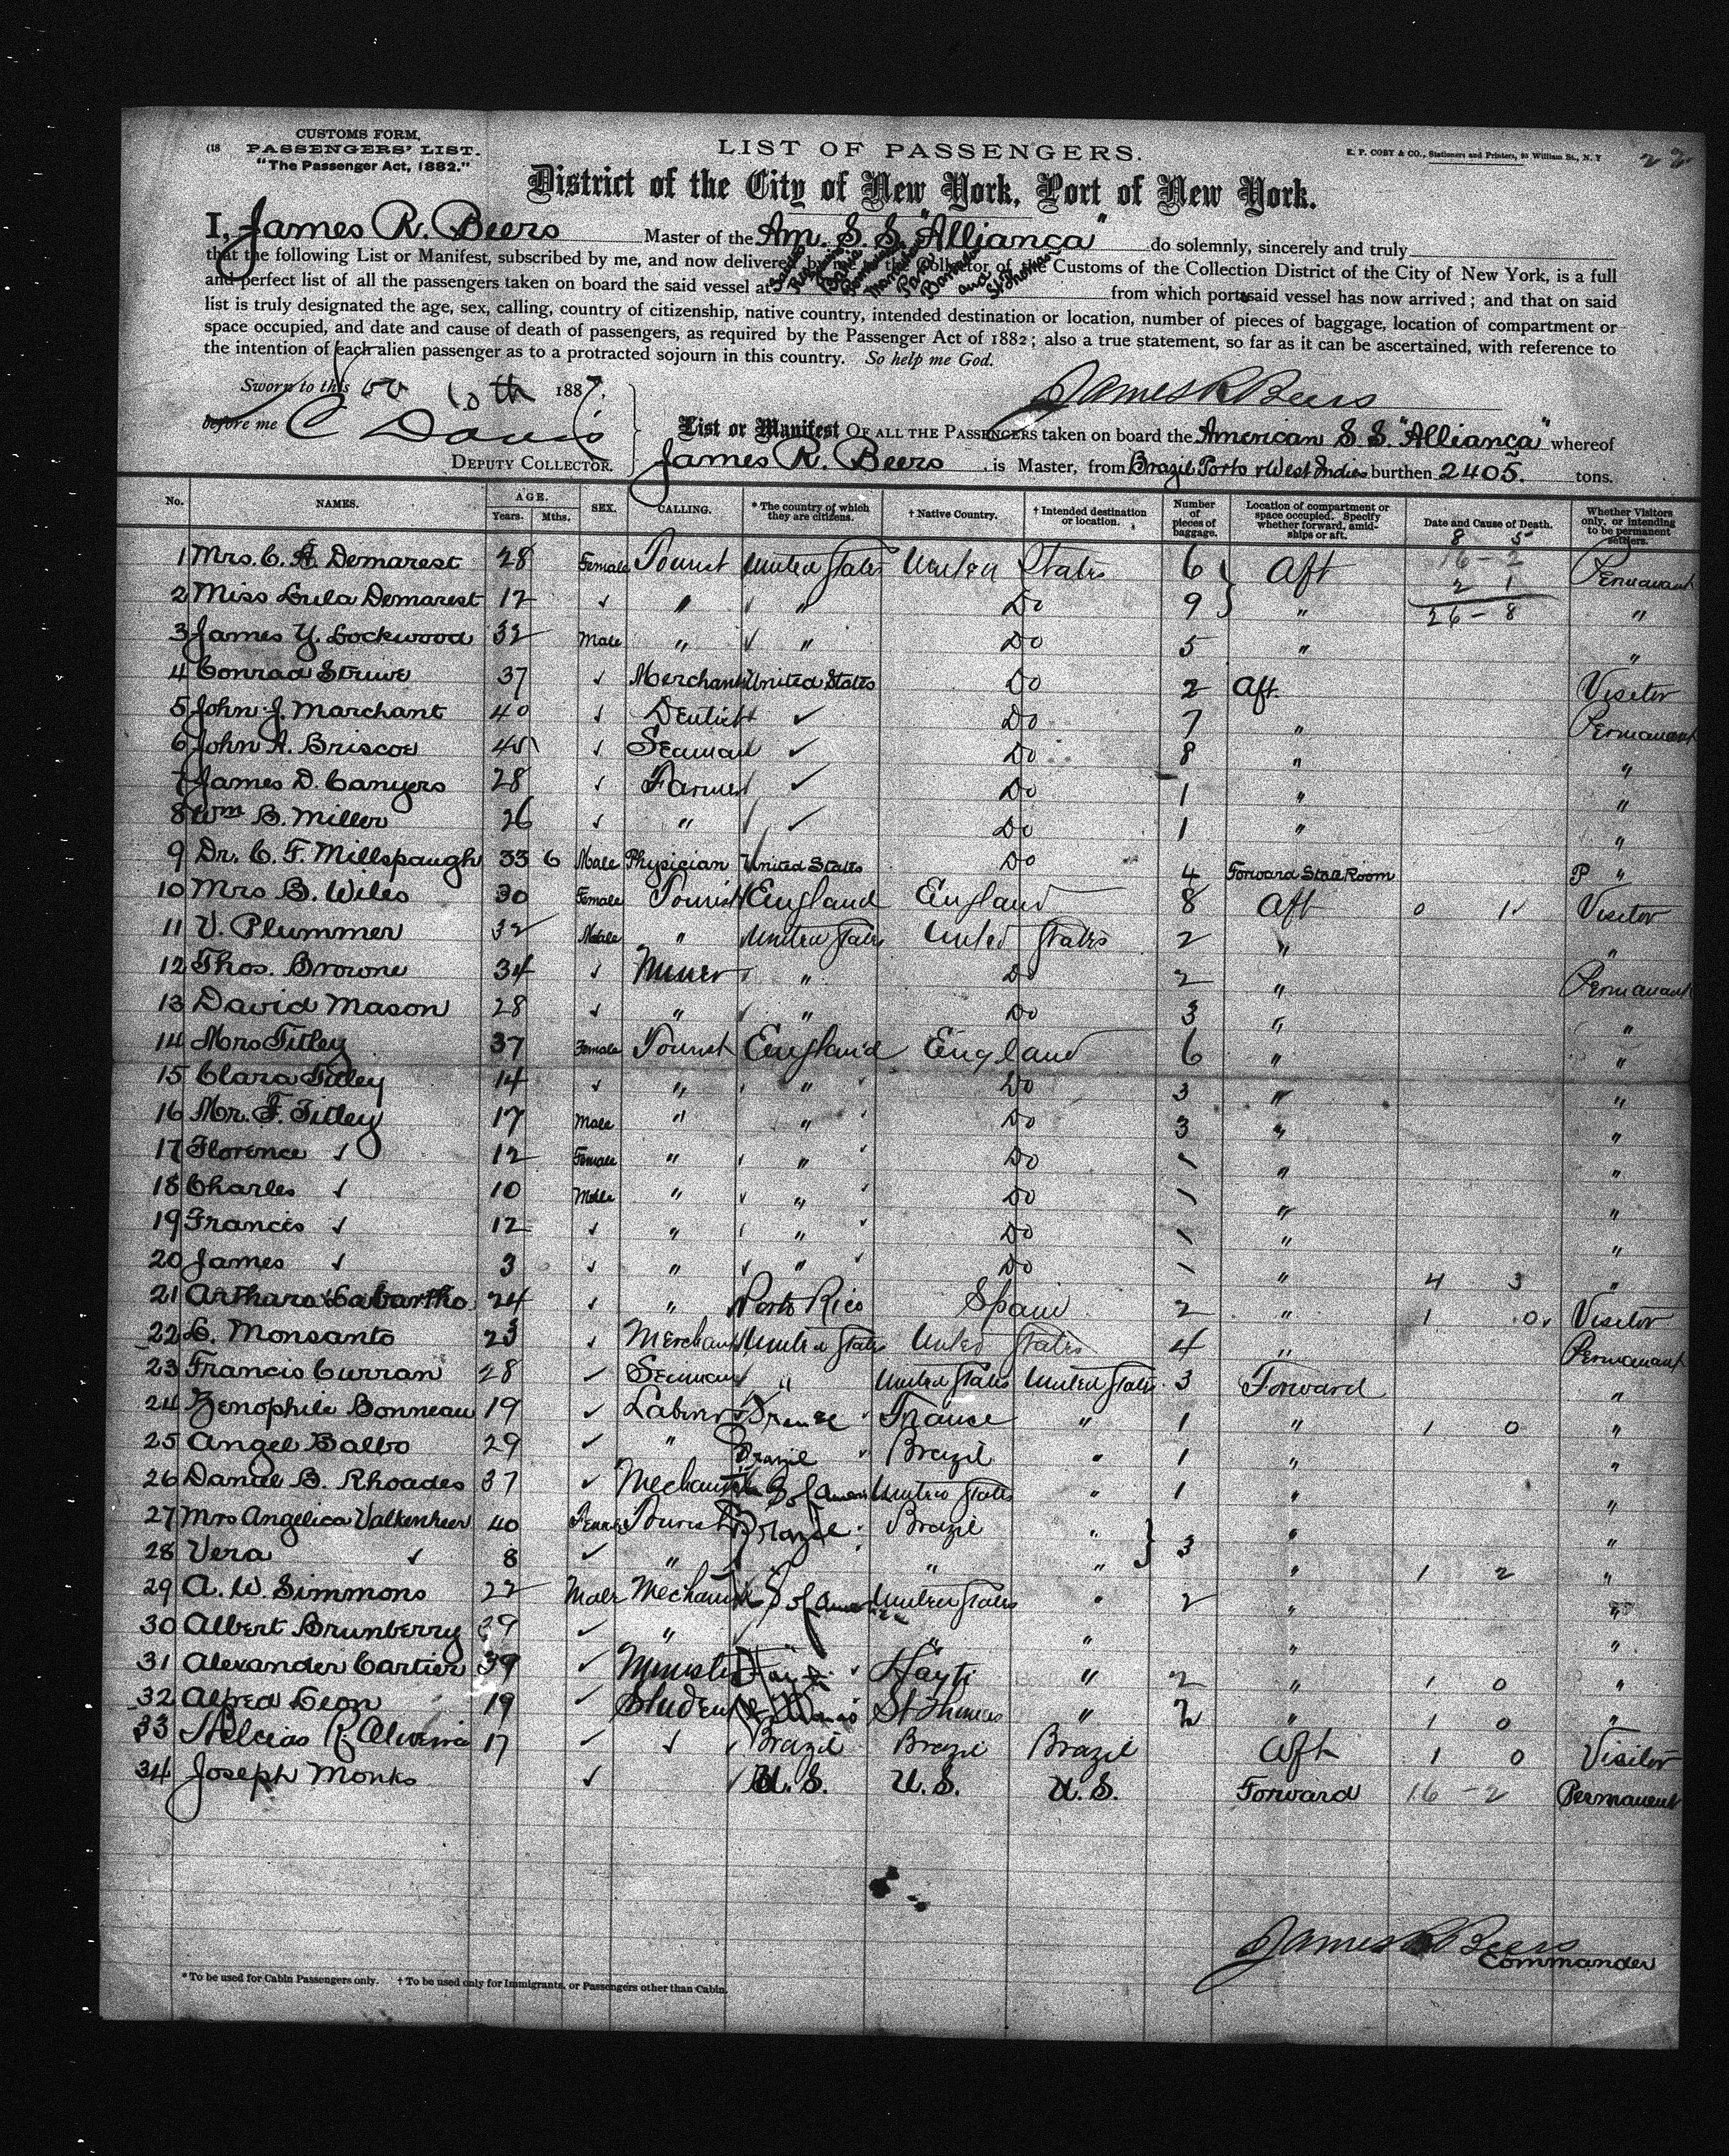 CUSTOMS FORM,
(18 PASSENGERS' LIST.
"The Passenger Act, 1882."
LIST OF PASSENGERS.
E. P. COBY & CO., Stationers and Printers, William St., N. Y
22
District of the City of New York, Port of New York.
I, James R. Beers Master of the Am. S. S. "Alliança" do solemnly, sincerely and truly
that the following List or Manifest, subscribed by me, and now delivered by the Collector of the Customs of the Collection District of the City of New York, is a full
and perfect list of all the passengers taken on board the said vessel at Barbados and St Thomas from which ports said vessel has now arrived; and that on said
list is truly designated the age, sex, calling, country of citizenship, native country, intended destination or location, number of pieces of baggage, location of compartment or
space occupied, and date and cause of death of passengers, as required by the Passenger Act of 1882; also a true statement, so far as it can be ascertained, with reference to
the intention of each alien passenger as to a protracted sojourn in this country. So help me God.
Sworn to this 10th 1887,
James R Beers
before me C Davis
DEPUTY COLLECTOR.
List or Manifest OF ALL THE PASSENGERS taken on board the American S. S. "Alliança" whereof
James R. Beers is Master, from Brazil Ports & West Indies burthen 2405. tons.
No. NAMES. AGE. Years. Mths. SEX. CALLING. * The country of which they are citizens. † Native Country. † Intended destination or location. Number of pieces of baggage. Location of compartment or space occupied. Specify whether forward, amidships or aft. Date and Cause of Death. Whether Visitors only, or intending to be permanent settlers.
8 5
16 - 2
2 1
26 - 8
1 Mrs. C. A. Demarest 28 Female Tourist United States United States 6 Aft Permanant
2 Miss Lula Demarest 12 ✓ " " Do 9 " "
3 James Y. Lockwood 32 Male " " Do 5 " "
4 Conrad Struwe 37 ✓ Merchant United States Do 2 Aft Visitor
5 John J. Marchant 40 ✓ Dentist ✓ Do 7 " Permanant
6 John A. Briscoe 45 ✓ Seaman ✓ Do 8 " "
7 James D. Canyers 28 ✓ Farmer ✓ Do 1 " "
8 Wm B. Miller 26 ✓ " ✓ Do 1 " "
9 Dr. C. F. Millspaugh 33 6 Male Physician United States Do 4 Forward State Room P "
10 Mrs B. Wiles 30 Female Tourist England England 8 Aft 0 1 Visitor
11 V. Plummer 32 Male " United States United States 2 " "
12 Thos. Browne 34 ✓ Miner " Do 2 " Permanant
13 David Mason 28 ✓ " " Do 3 " "
14 Mrs Titley 37 Female Tourist England England 6 " "
15 Clara Titley 14 ✓ " " Do 3 " "
16 Mr. F. Titley 17 Male " " Do 3 " "
17 Florence ✓ 12 Female " " Do " "
18 Charles ✓ 10 Male " " Do " "
19 Francis ✓ 12 ✓ " " Do " "
20 James ✓ 3 ✓ " " Do " 4 3 "
21 24 ✓ " Porto Rico Spain 2 " 1 0 Visitor
22 L. Monsanto 23 ✓ Merchant United States United States 4 " Permanant
23 Francis Curran 28 ✓ Seaman " United States United States 3 Forward "
24 Zenophile Bonneau 19 ✓ Laborer France France " 1 " 1 0 "
25 Angel Balbo 29 ✓ " Brazil Brazil " 1 " "
26 Daniel B. Rhoades 37 ✓ Mechanic U S of America United States " 1 " "
27 Mrs Angelica Valkenheer 40 Female Tourist Brazil Brazil " 3 " "
28 Vera ✓ 8 ✓ " " " " 1 2 "
29 A. W. Simmons 22 Male Mechanic U S of America United States " 2 " "
30 Albert Brunberry 39 ✓ " " " " "
31 Alexander Cartier 39 ✓ Minister Hayti Hayti " 2 " 1 0 "
32 Alfred Leon 19 ✓ Student St Thomas St Thomas " 2 " 1 0 "
33 17 ✓ ✓ Brazil Brazil Brazil Aft 1 0 Visitor
34 Joseph Monks ✓ U. S. U. S. U. S. Forward 16 - 2 Permanent
James R Beers
Commander
* To be used for Cabin Passengers only. † To be used only for Immigrants, or Passengers other than Cabin.